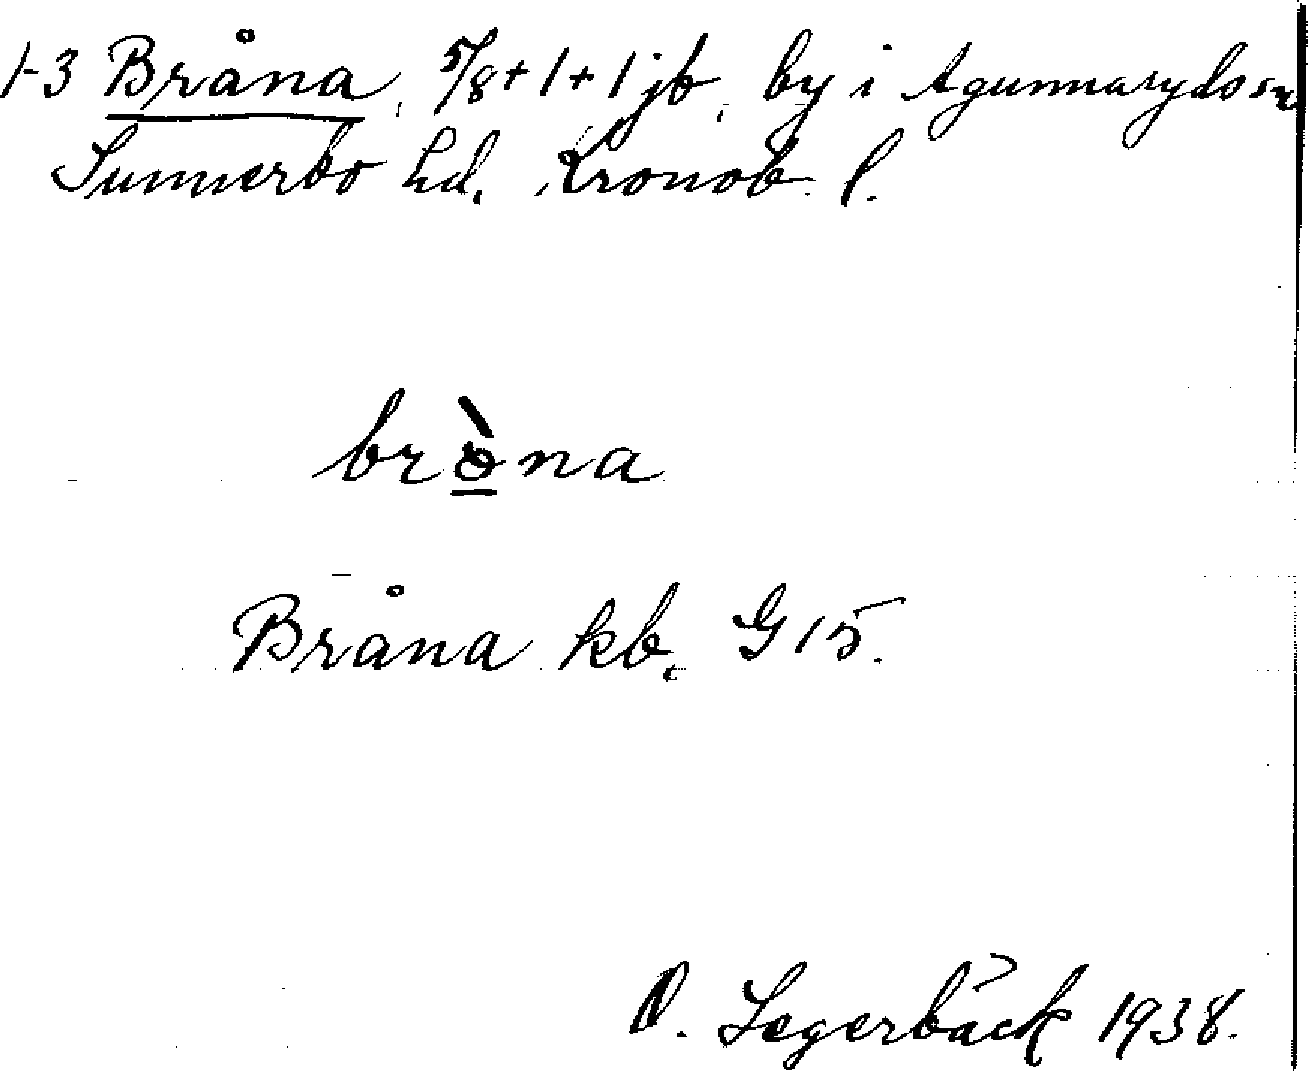 1-3 Bråna, 5/8+1+1 jb, by i Agunnaryds sn
Sunnerbo hd. Kronob. l.
brò̠na
Bråna kb, G 15.
O. Segerbäck 1938.